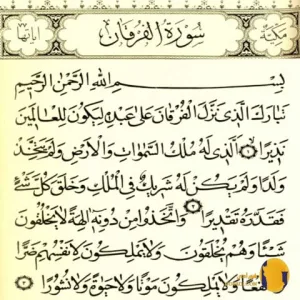 مكية سورة الفرقان آياتها ٧٧
بسم الله الرحمن الرحيم
تبارك الذي نزل الفرقان على عبده ليكون للعالمين
نذيرا ١ الذي له ملك السموات والأرض ولم يتخذ
ولدا ولم يكن له شريك في الملك وخلق كل شيء
فقدره تقديرا ٢ واتخذوا من دونه آلهة لا يخلقون
شيئا وهم يخلقون ولا يملكون لأنفسهم ضرا
ولا نفعا ولا يملكون موتا ولا حيوة ولا نشورا ٣